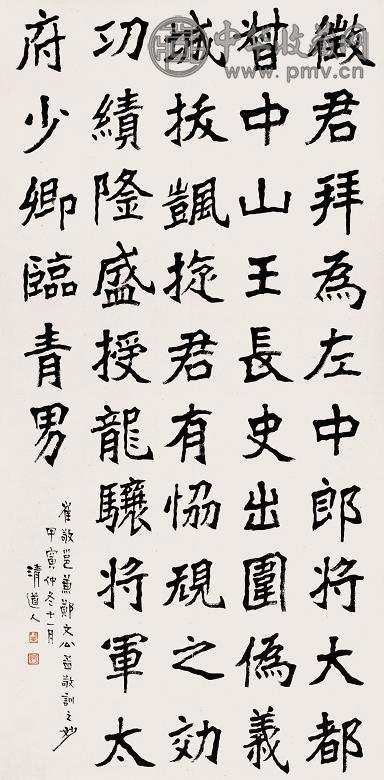 徵君拜為左中郎將大都
督中山王長史出圍偽義
城拔颽旋君有恊規之効
功績隆盛授龍驤將軍太
府少卿臨青男
崔敬邕兼鄭文公孟敬訓之妙
甲寅仲冬十一月
清道人
www.pmv.cn